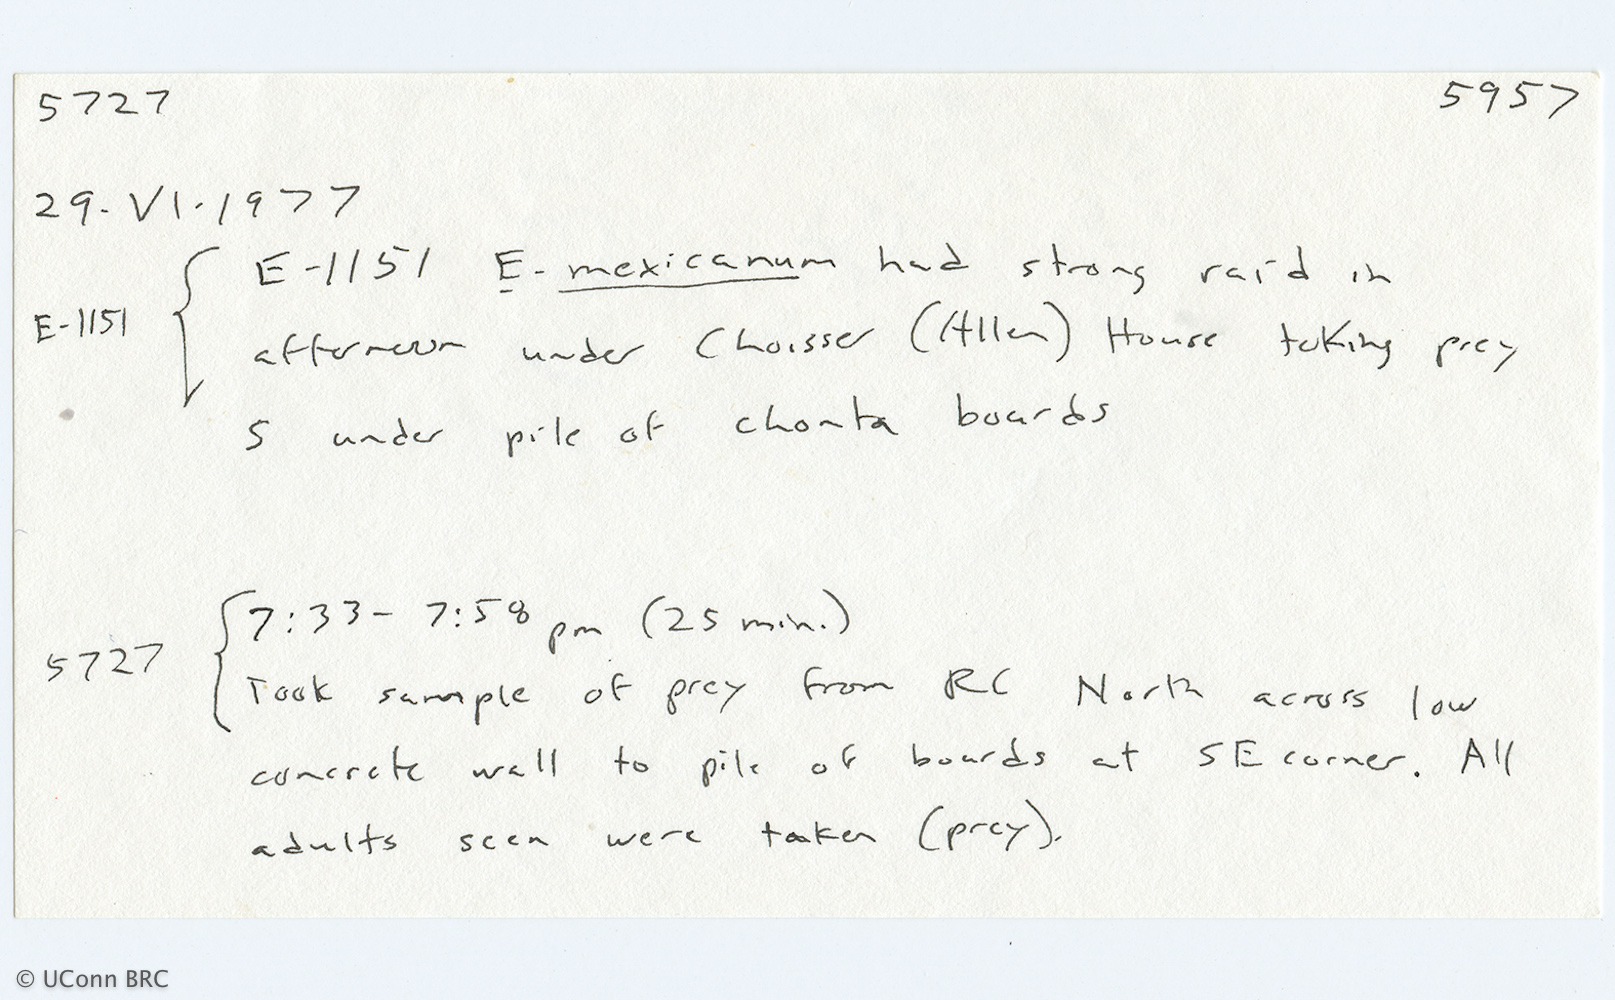 5727 5957
29.VI.1977
E-1151 E. mexicanum had strong raid in
E-1151
afternoon under Choisser (Allen) House taking prey
S under pile of chonta boards
7:33 - 7:58 pm (25 min.)
5727
Took sample of prey from RC North across low
concrete wall to pile of boards at SE corner. All
adults seen were taken (prey).
© UConn BRC